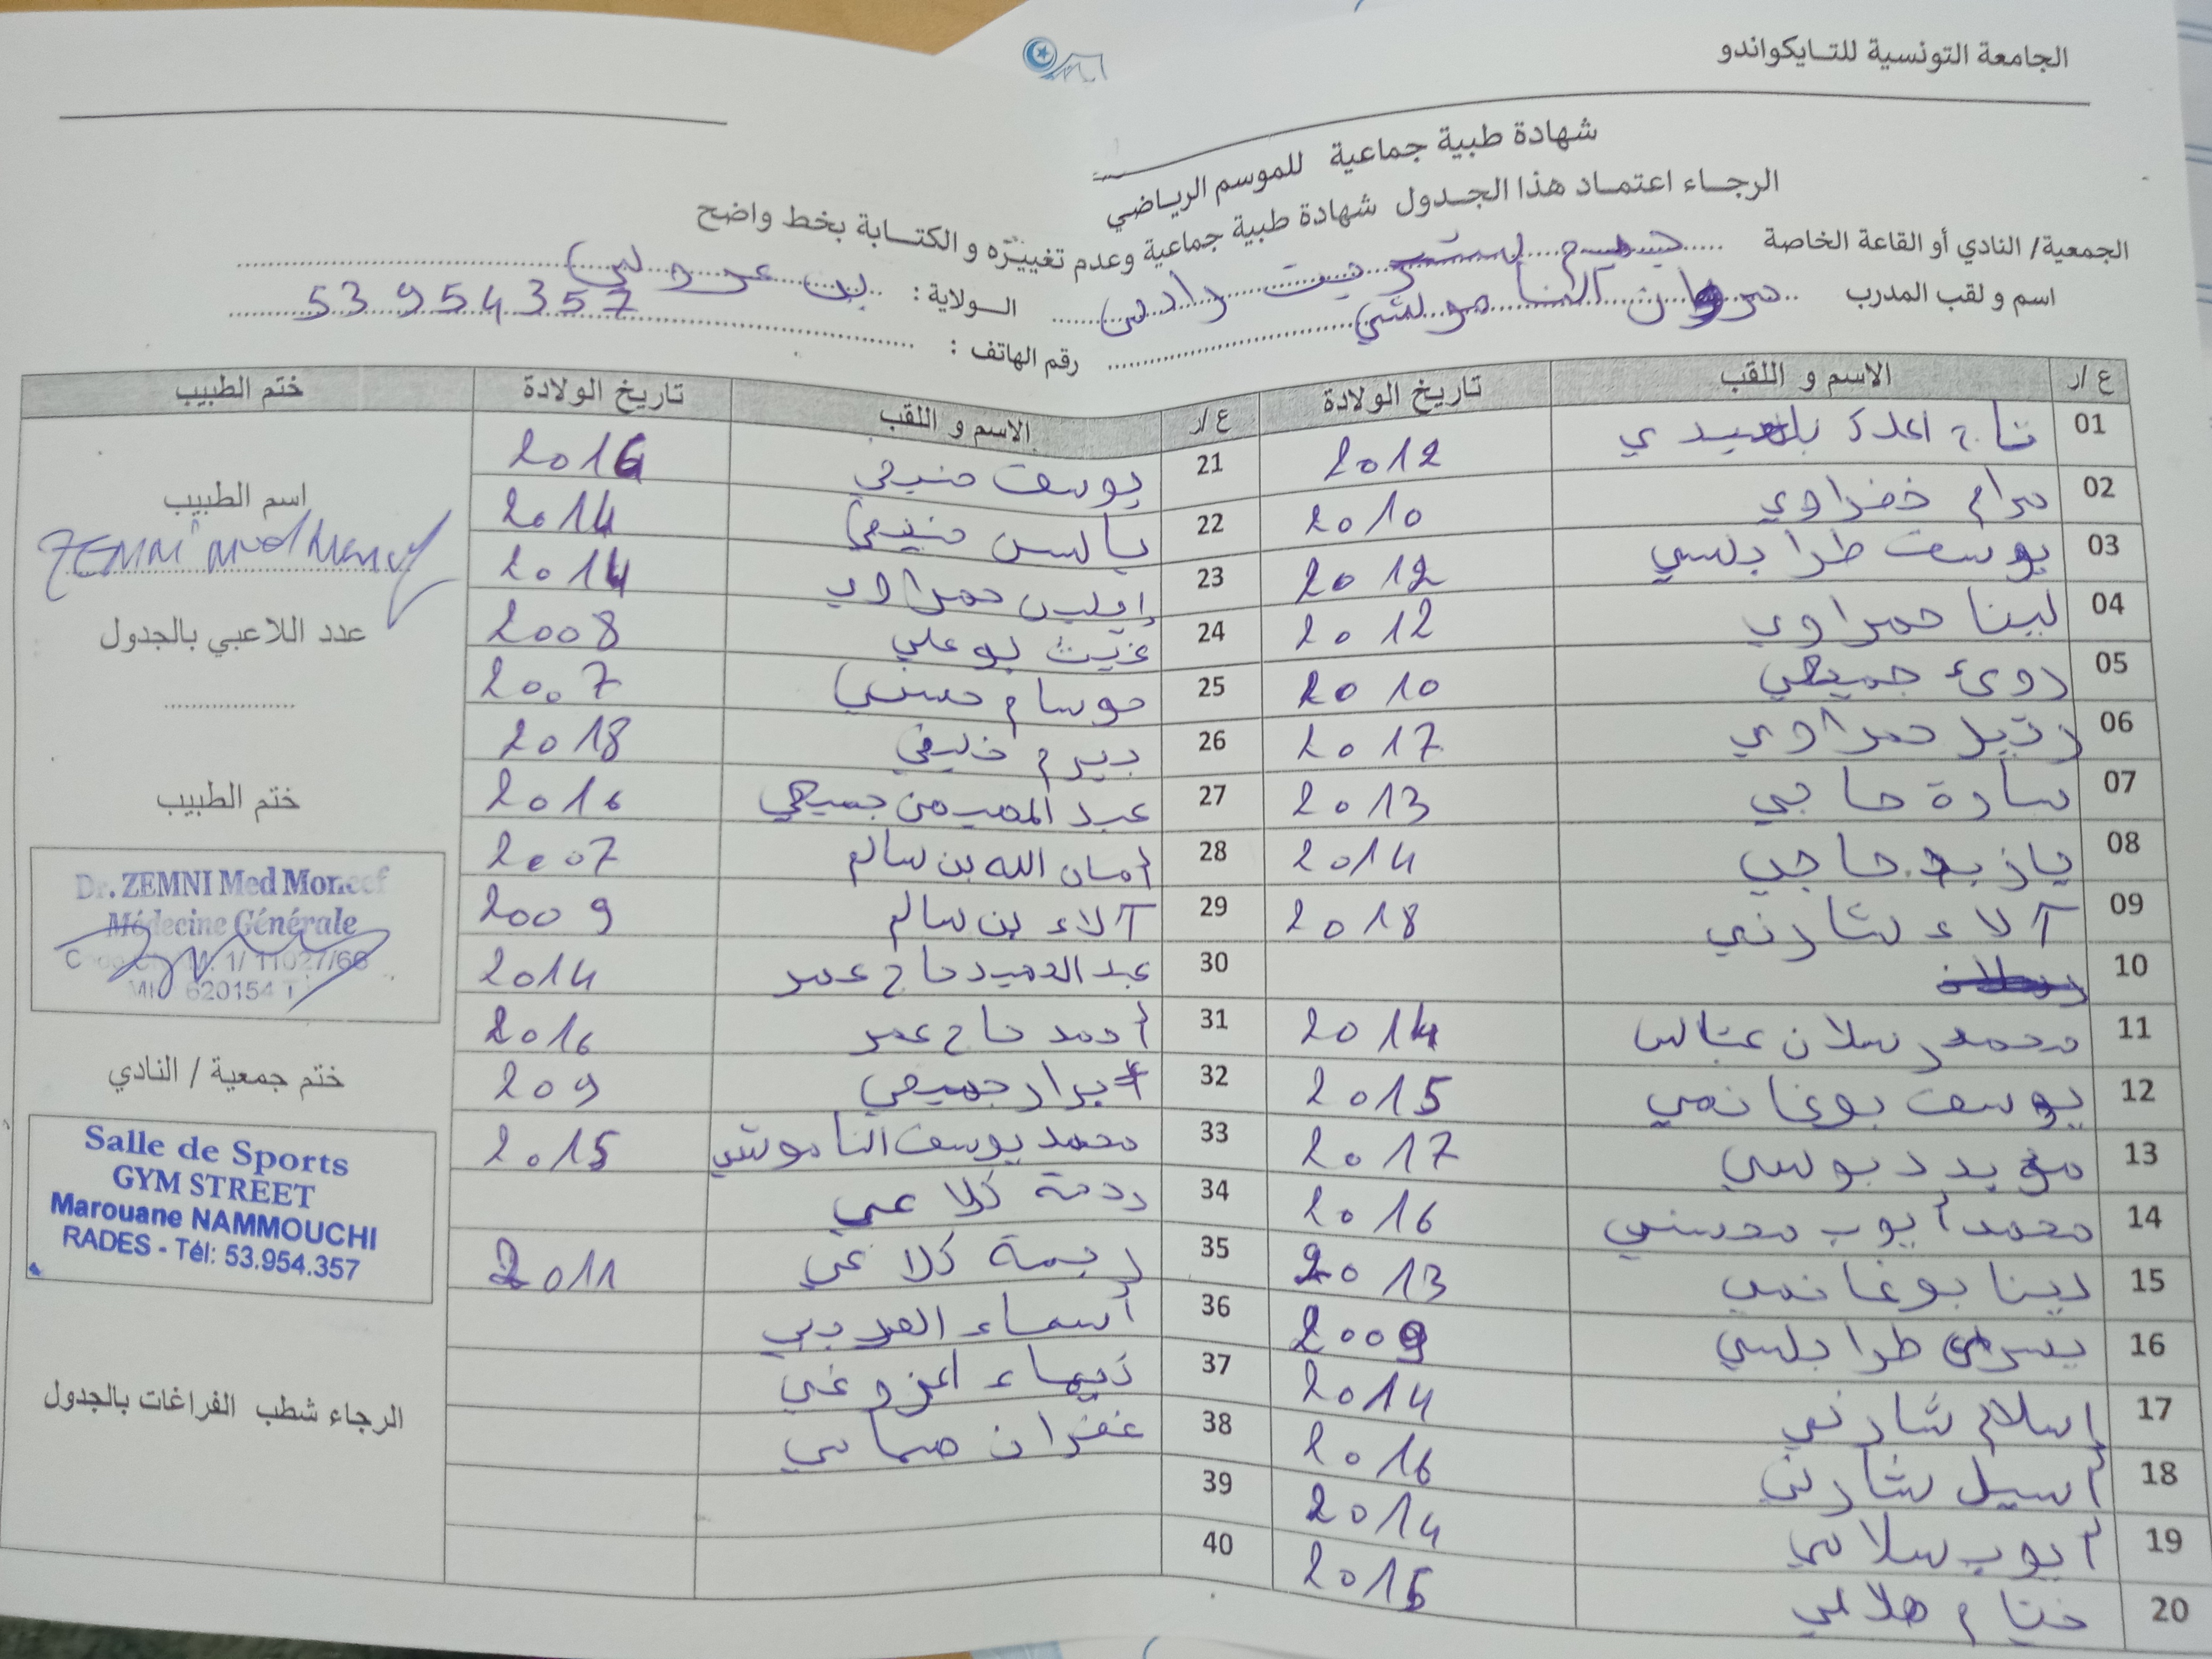 الجامعة التونسية للتايكواندو
شهادة طبية جماعية للموسم الرياضي
الرجاء اعتماد هذا الجدول شهادة طبية جماعية وعدم تغييره و الكتابة بخط واضح
الجمعية/ النادي أو القاعة الخاصة جيم ستريت رادس الولاية : بن عروس
اسم و لقب المدرب مروان الناموشي رقم الهاتف : 53 954 357
ع/ر الاسم و اللقب تاريخ الولادة ع/ر الاسم و اللقب تاريخ الولادة ختم الطبيب
01 2012 21 يوسف منيعي 2016
02 مرام خضراوي 2010 22 ياسين منيعي 2014
03 يوسف طرابلسي 2012 23 حمراوي 2014
04 لينا حمراوي 2012 24 غيث بوعلي 2008
05 جميعي 2010 25 حسني 2007
06 حمراوي 2017 26 بيرم خليفي 2018
07 سارة حاجي 2013 27 عبد المهيمن جميعي 2016
08 يازيد حاجي 2014 28 أمان الله بن سالم 2007
09 آلاء شارني 2018 29 آلاء بن سالم 2009
10 30 عبد الحميد حاج عمر 2014
11 محمد رسلان 2014 31 أحمد حاج عمر 2016
12 يوسف بوغانمي 2015 32 أبرار جميعي 209
13 مؤيد دبوسي 2017 33 محمد يوسف الناموشي 2015
14 محمد أيوب محسني 2016 34 رحمة كلاعي
15 دينا بوغانمي 2013 35 ريمة كلاعي 2011
16 يسرى طرابلسي 2009 36 أسماء
17 إسلام شارني 2014 37
18 أسيل شارني 2016 38 غفران
19 أيوب سلامي 2014 39
20 ختام هلالي 2015 40
اسم الطبيب
عدد اللاعبي بالجدول
ختم الطبيب
Dr. ZEMNI Med Moncef
Médecine Générale
ختم جمعية / النادي
Salle de Sports
GYM STREET
Marouane NAMMOUCHI
RADES - Tél: 53.954.357
الرجاء شطب الفراغات بالجدول